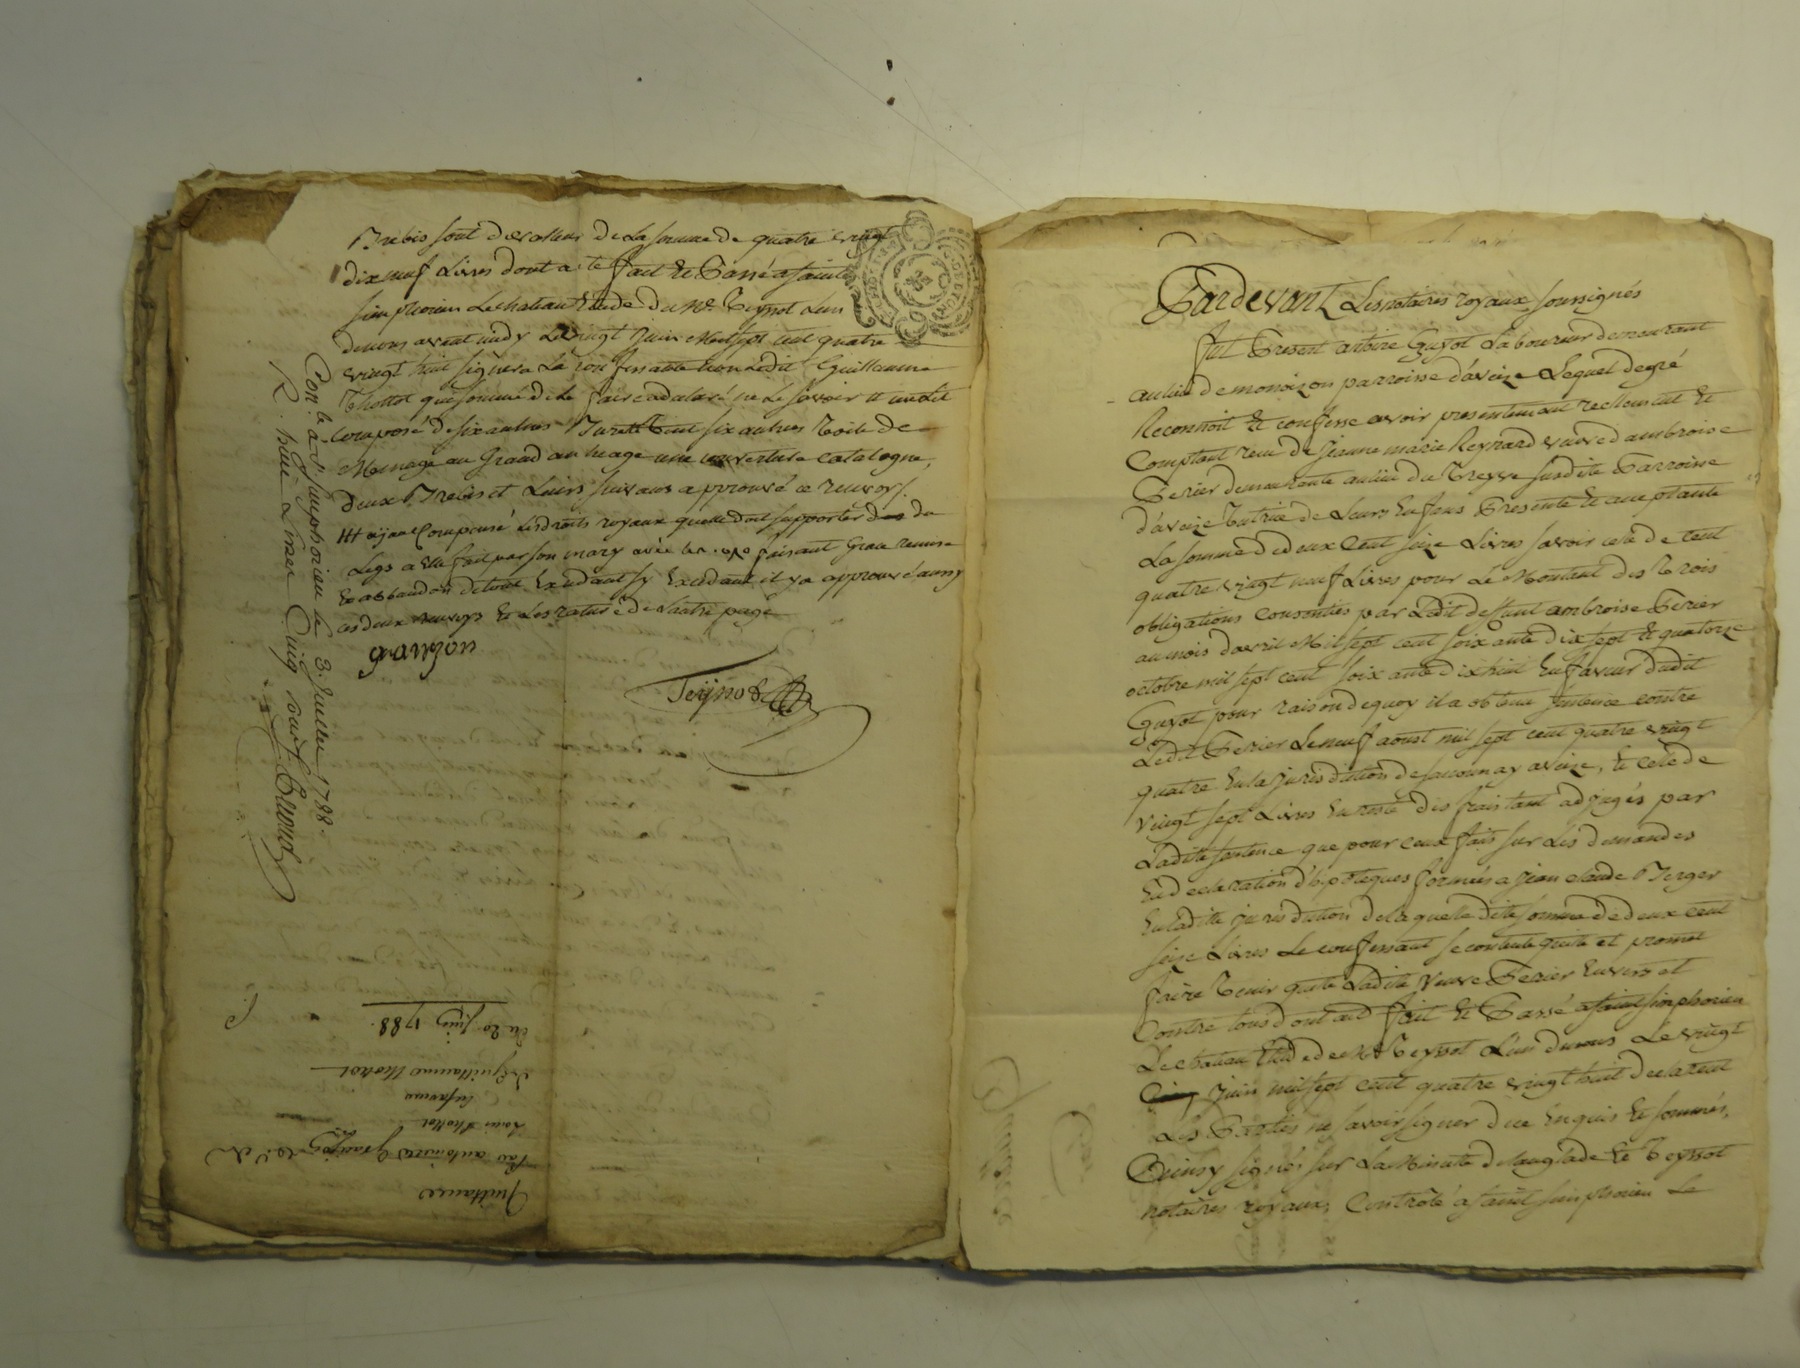 Brebis sont de valleur de La somme de quatre vingt
dix neuf Livres dont acte fait et Passé a saint
simphorien Lechateau Etude du Me. Teyssot L'un
de nous avant midy Le vingt Juin Mil sept cent quatre
vingt huit signera La confessante non Ledit Guillaume
Thollot qui sommé de Le faire a declaré ne Le savoir
Composé de six autres six autres Toile de
Menage au Grand une couverture catalogne,
deux Brebis et Leurs suivans approuvé ce renvoy.
Les droits royaux quelle doit supporter du
Legs a Elle fait par son mary faisant Grace remise
Et abbandon de tout Excedant sy Excedant il y a approuvé aussy
ces deux renvoys Et Les raturé de L'autre page
Teyssot
Conlé a St. simphorien le 3. Juillet 1788.
R. Livres Cinq
Du 20 Juin 1788.
de Guillaume thollot
En faveur
Louis thollot
Par antoinette
Quittance
Pardevant Les notaires royaux soussignés
fut Present antoine Guyot Laboureur demeurant
au lieu de parroisse d'aveize Lequel de gré
Reconnoit Et confesse avoir presentement reellement Et
Comptant recu de jeanne marie Reynard veuve d'ambroise
Perier demeurante au lieu du Treyve susdite Parroisse
d'aveize Tutrice de Leurs Enfans Presente Et acceptante
La somme de deux Cent seize Livres savoir celle de Cent
quatre vingt neuf Livres pour Le Montant des Trois
obligations consenties par Ledit deffunt ambroise Perier
au mois d'avril Mil sept cent soixante dix sept Et quatorze
octobre mil sept cent soixante dix huit En faveur dudit
Guyot pour raison de quoy il a obtenu sentence contre
Ledit Perier Le neuf aoust mil sept cent quatre vingt
quatre En la jurisdiction de aveize, Et celle de
vingt sept Livres En reste des frais tant adjugés par
Ladite sentence que pour ceux faits sur Les demandes
En declaration d'hipoteques formées a jean claude Berger
En Ladite jurisdiction de laquelle dite somme de deux cent
seize Livres Le confessant se contente quitte et promet
faire Tenir quitte Ladite Veuve Perier Envers et
Contre tous dont acte fait Et Passé a saint simphorien
Le chateau Etude de Me Teyssot L'un de nous Le vingt
Cinq Juin mil sept cent quatre vingt huit declarent
Les Parties ne savoir signer de ce Enquis Et sommés,
Ainsy signés sur La Minute delanglade Et Teyssot
notaires royaux, Controlé a saint simphorien Le